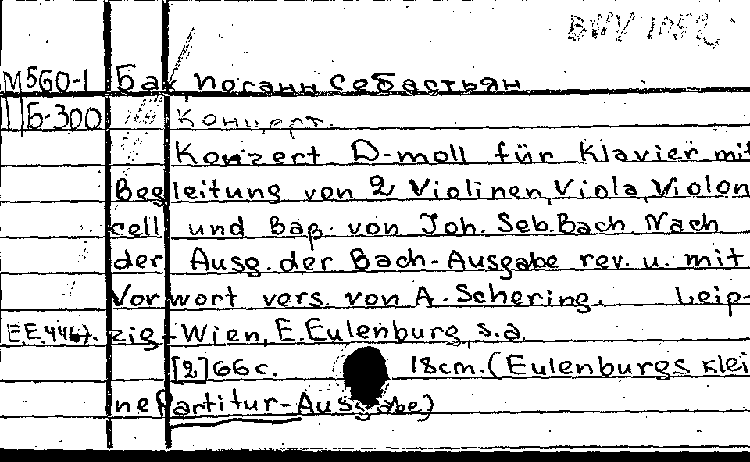 BWV 1052
М560-1 Бах Иоганн Себастьян
Б-300 Концерт.
Konzert D-moll für Klavier mit
Begleitung von 2 Violinen, Viola, Violon
cell und Baß. von Joh. Seb. Bach Nach
der Ausg. der Bach-Ausgabe rev. u. mit
Vorwort vers. von A. Schering. Leip-
E.E. 4467. zig-Wien, E. Eulenburg, s.a.
[2] 66 c. 18cm. (Eulenburgs klei
ne Partitur-Ausgabe)